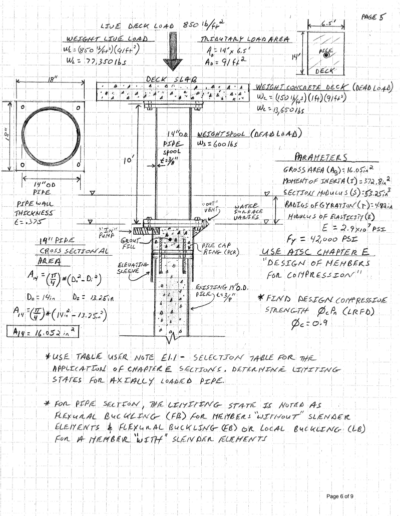 PAGE 5
LIVE DECK LOAD 850 lb/ft²
WEIGHT LIVE LOAD
WL=(850 lb/ft²)(91ft²)
WL= 77,350 lbs
TRIBUTARY LOAD AREA
A= 14' x 6.5'
A= 91ft²
6.5'
14'
DECK
18"
18"
DECK SLAB
WEIGHT CONCRETE DECK (DEAD LOAD)
Wc=(150 lb/ft³)(1ft)(91ft²)
Wc=13,650 lbs
14"OD
PIPE
SPOOL
t=3/8"
10'
WEIGHT SPOOL (DEAD LOAD)
Ws=600 lbs
14"OD
PIPE
PIPE WALL
THICKNESS
t=.375"
PARAMETERS
GROSS AREA (Ag)=16.05in²
MOMENT OF INERTIA (I)=372.8in⁴
SECTION MODULUS (S)=53.25in³
RADIUS OF GYRATION (r)=4.82in
MODULUS OF ELASTICITY (E)
E = 2.9x10⁷ PSI
Fy = 42,000 PSI
"OUT"
VENT
WATER
SURFACE
VARIES
"IN"
PUMP
GROUT
FILL
PILE CAP
RING
ELEVATING
SLEEVE
EXISTING 14"O.D.
PILE t=3/8"
14" PIPE
CROSS SECTIONAL
AREA
A14=(π/4)*(Do²-Di²)
Do=14in Di=13.25in
A14=(π/4)*(14²-13.25²)
A14=16.052in²
USE AISC CHAPTER E
"DESIGN OF MEMBERS
FOR COMPRESSION"
* FIND DESIGN COMPRESSIVE
STRENGTH ØcPn (LRFD)
Øc=0.9
* USE TABLE USER NOTE E1.1 - SELECTION TABLE FOR THE
APPLICATION OF CHAPTER E SECTIONS. DETERMINE LIMITING
STATES FOR AXIALLY LOADED PIPE.
* FOR PIPE SECTION, THE LIMITING STATE IS NOTED AS
FLEXURAL BUCKLING (FB) FOR MEMBERS "WITHOUT" SLENDER
ELEMENTS & FLEXURAL BUCKLING (FB) OR LOCAL BUCKLING (LB)
FOR A MEMBER "WITH" SLENDER ELEMENTS
Page 6 of 9